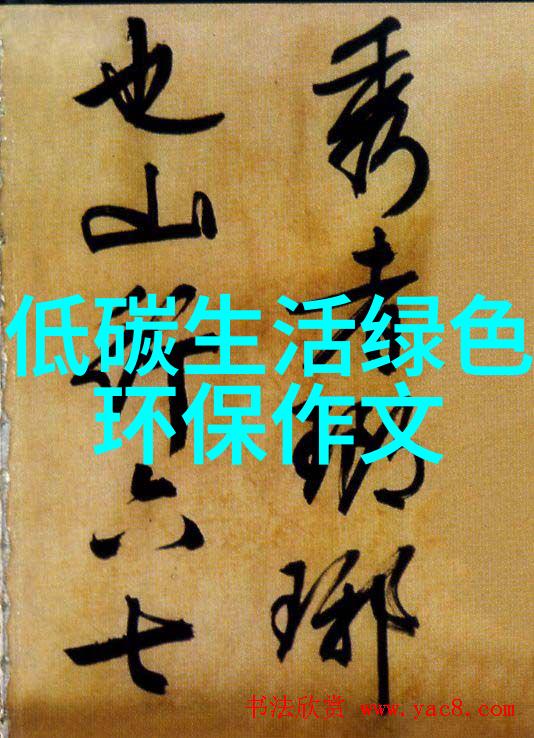 秀者瑯琊
也山行六七
低碳生活绿色
环保作文
书法欣赏 www.yac8.com